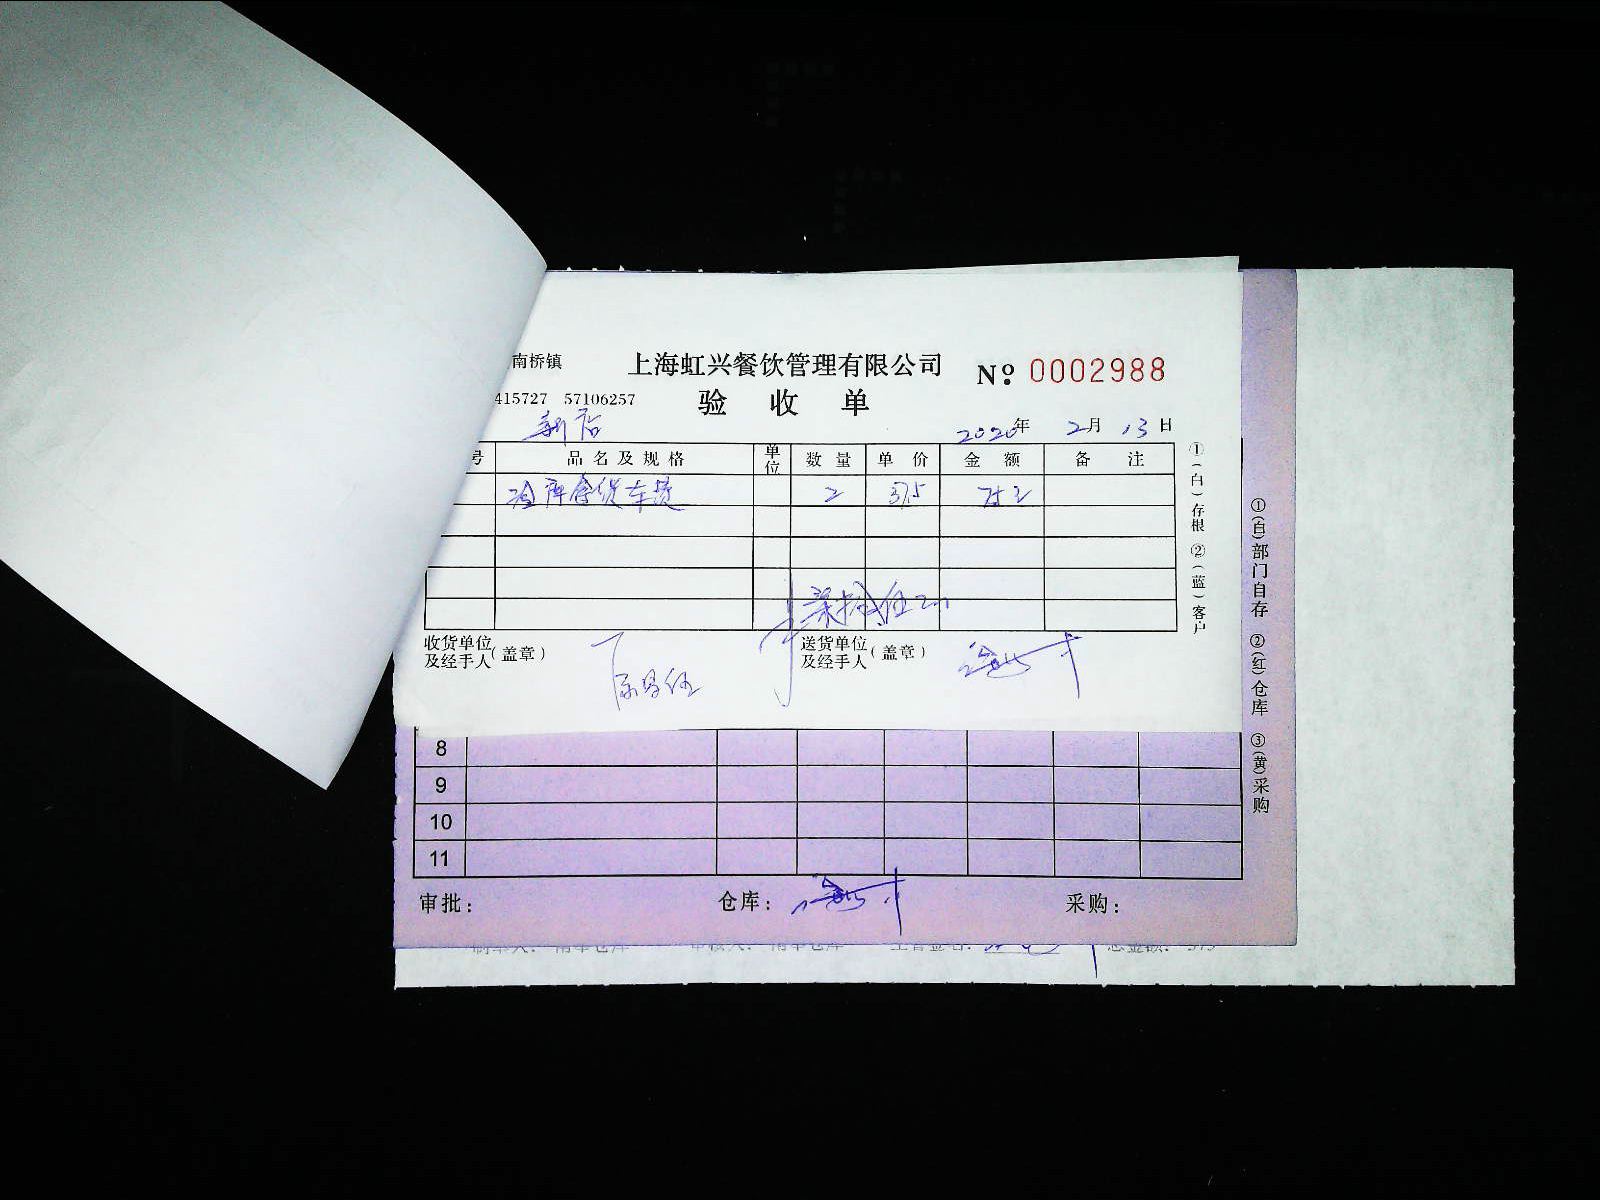 南桥镇
上海虹兴餐饮管理有限公司
№ 0002988
415727 57106257
验 收 单
2020年 2月 13日
号 品名及规格 单位 数量 单价 金额 备注
冷库拿货车费 2 37.5
①(白)存根 ②(蓝)客户
收货单位及经手人(盖章)
送货单位及经手人(盖章)
①(白)部门自存 ②(红)仓库 ③(黄)采购
8
9
10
11
审批: 仓库: 采购: